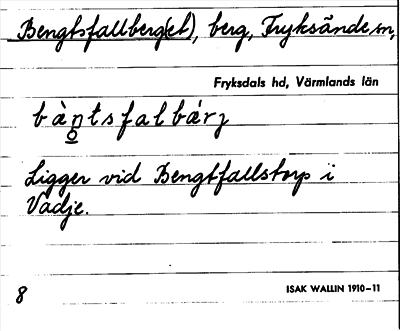 Bengtsfallberg(et), berg, Fryksände sn,
Fryksdals hd, Värmlands län
bàn̥tsfalbárj
Ligger vid Bengtfallstorp i
Vadje.
8
ISAK WALLIN 1910–11